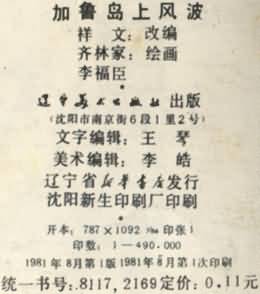 加鲁岛上风波
祥文：改编
齐林家：绘画
李福臣
辽宁美术出版社 出版
（沈阳市南京街6段1里2号）
文字编辑：王琴
美术编辑：李皓
辽宁省新华书店发行
沈阳新生印刷厂印刷
开本：787×1092 印张1
印数：1—490.000
1981年8月第1版1981年8月第1次印刷
统一书号：.8117，2169定价：0.11元